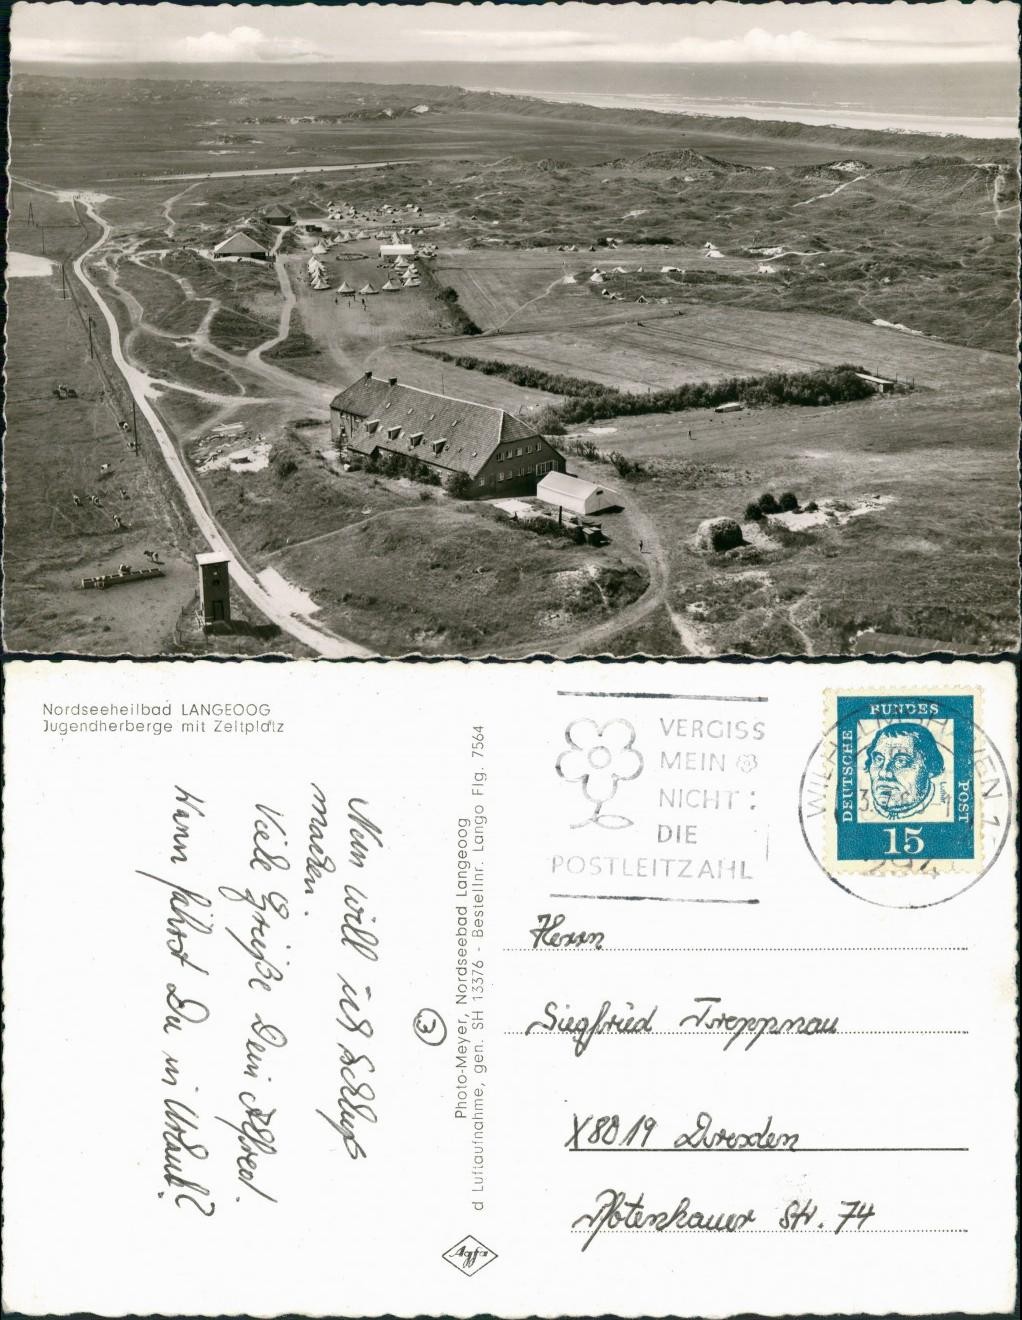 Nordseeheilbad LANGEOOG
Jugendherberge mit Zeltplatz
Nun will ich Schluß
machen.
Viele Grüße Dein Alfred.
Wann fährst Du in Urlaub?
③
Photo-Meyer, Nordseebad Langeoog
d Luftaufnahme, gen. SH 13376 - Bestellnr. Lango Flg. 7564
Agfa
VERGISS
MEIN
NICHT:
DIE
POSTLEITZAHL
DEUTSCHE
BUNDES
POST
15
Herrn
Siegfried Treppnau
X8019 Dresden
Pfotenhauer Str. 74